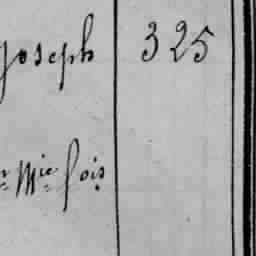 Joseph 325
Mie fois